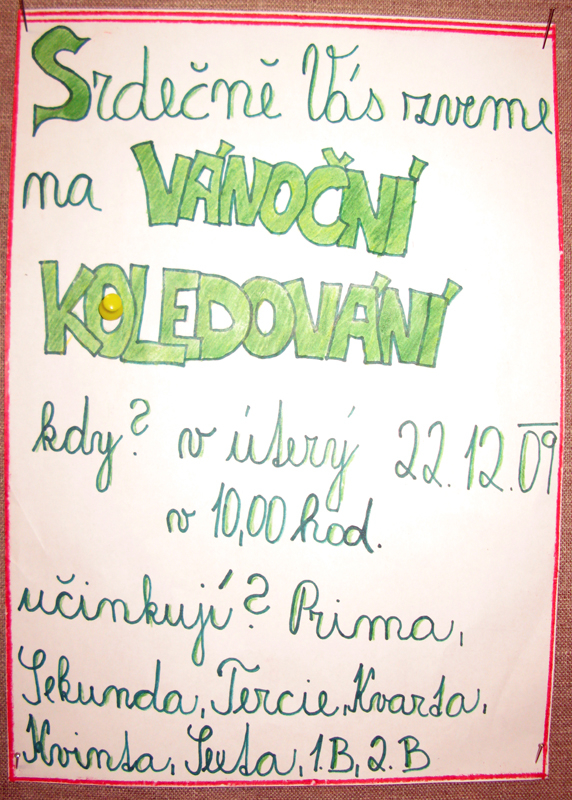 Srdečně Vás zveme
na VÁNOČNÍ
KOLEDOVÁNÍ
kdy? v úterý 22.12.09
v 10,00 hod.
učinkují? Prima,
Sekunda, Tercie, Kvarta,
Kvinta, Sexta, 1.B, 2.B